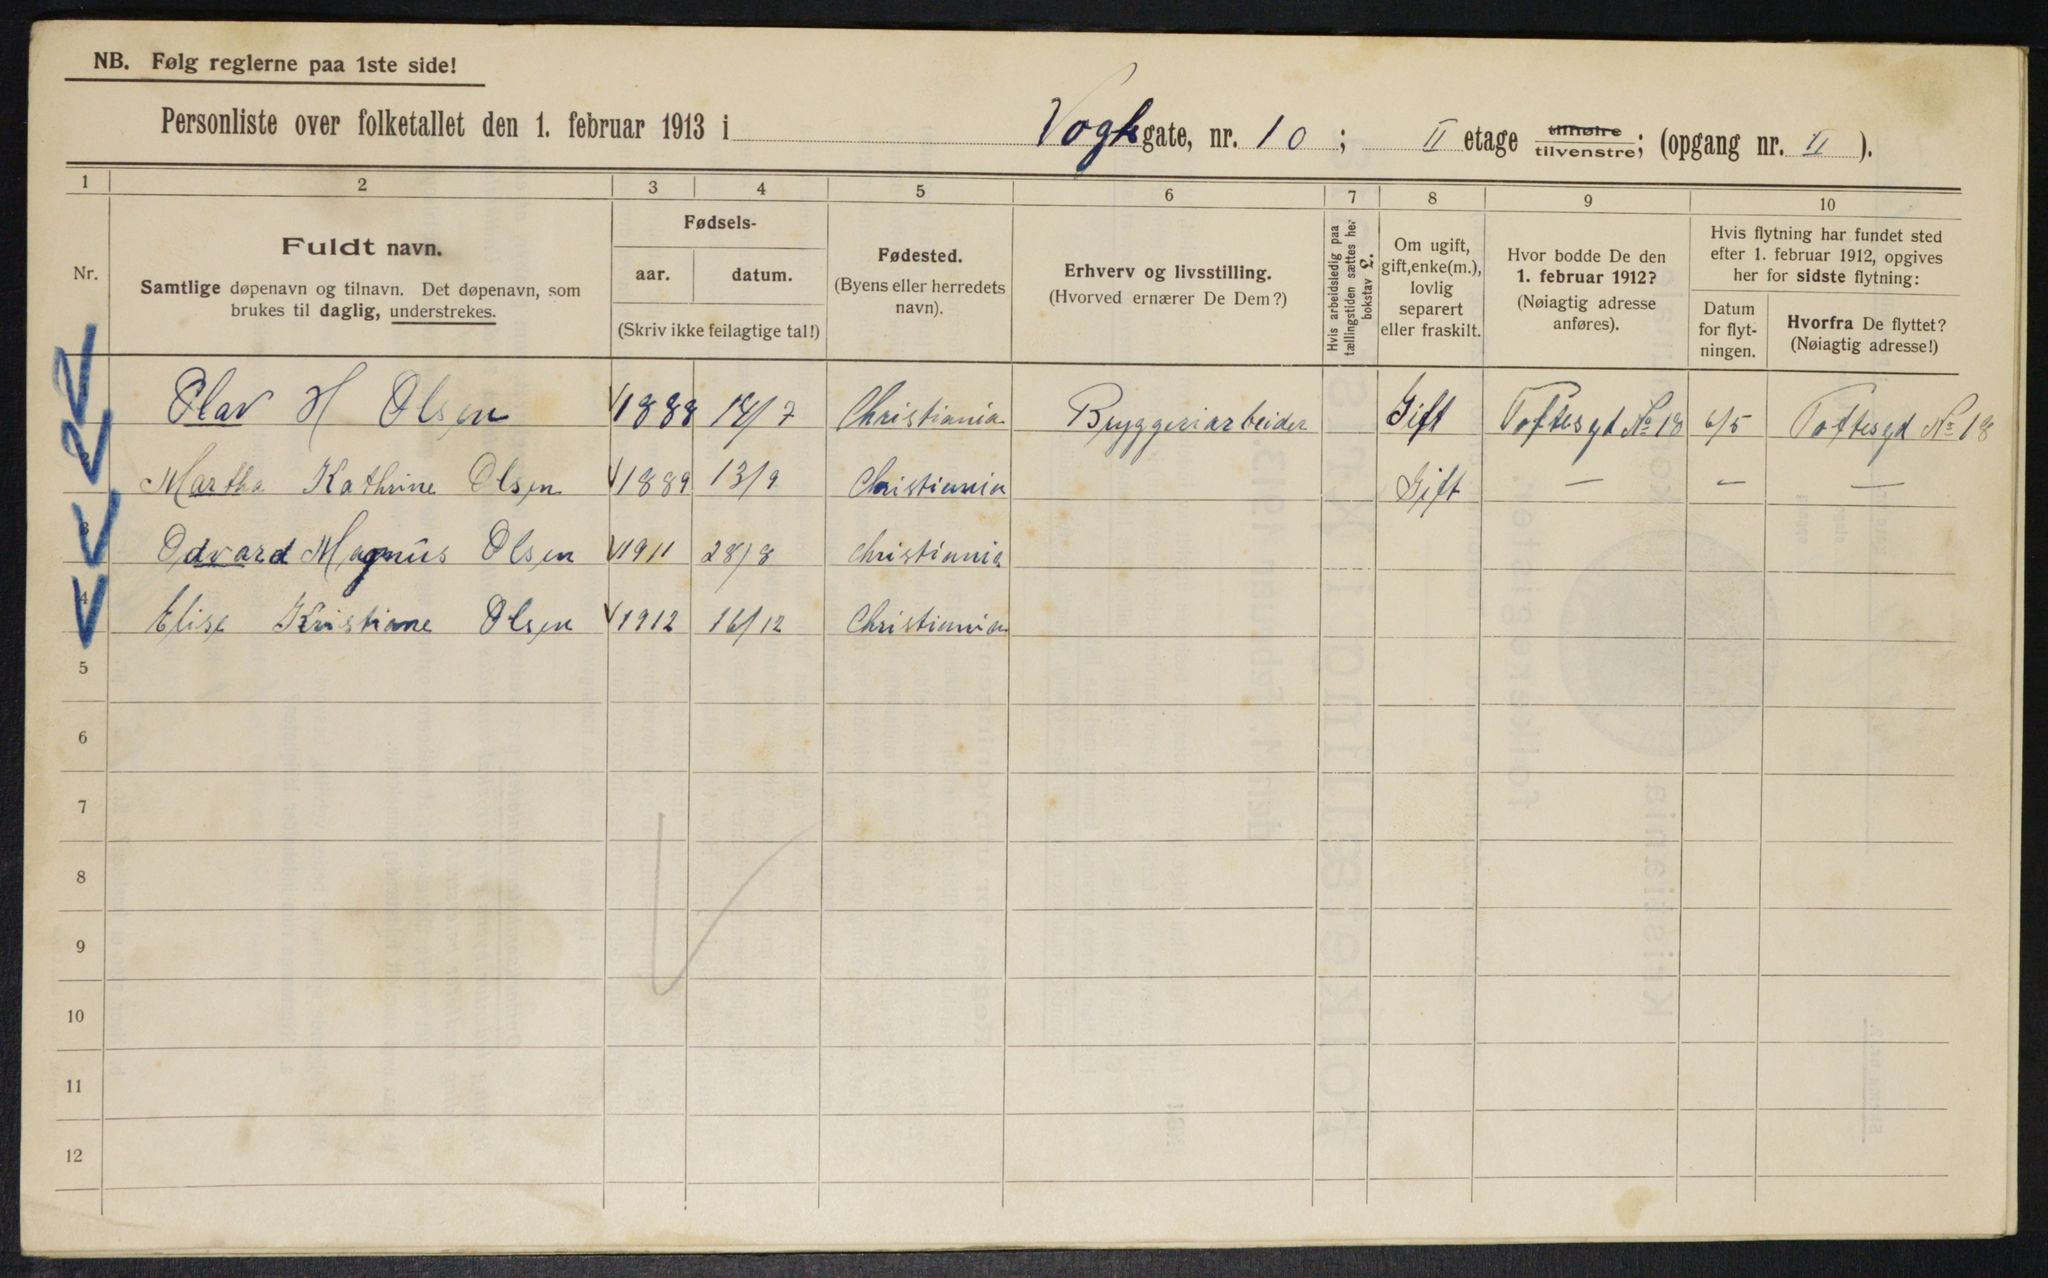 NB. Følg reglerne paa 1ste side!
Personliste over folketallet den 1. februar 1913 i Vogtsgate, nr. 10; II etage tilhøire tilvenstre; (opgang nr. II ).
1 2 3 4 5 6 7 8 9 10
Nr.
Fuldt navn.
Samtlige døpenavn og tilnavn. Det døpenavn, som
brukes til daglig, understrekes.
Fødsels-
aar. datum.
(Skriv ikke feilagtige tal!)
Fødested.
(Byens eller herredets
navn).
Erhverv og livsstilling.
(Hvorved ernærer De Dem?)
Hvis arbeidsledig paa
tællingstiden sættes her
bokstav L.
Om ugift,
gift, enke(m.),
lovlig
separert
eller fraskilt.
Hvor bodde De den
1. februar 1912?
(Nøiagtig adresse
anføres).
Hvis flytning har fundet sted
efter 1. februar 1912, opgives
her for sidste flytning:
Datum
for flyt-
ningen.
Hvorfra De flyttet?
(Nøiagtig adresse!)
Olav H Olsen 1888 18/7 Christiania Bryggeriarbeider Gift Toftesgd No 18 6/5 Toftesgd No 18
Martha Kathrine Olsen 1889 13/9 Christiania Gift — — —
3 Odvard Magnus Olsen 1911 28/8 Christiania
4 Elise Kristiane Olsen 1912 16/12 Christiania
5
6
7
8
9
10
11
12